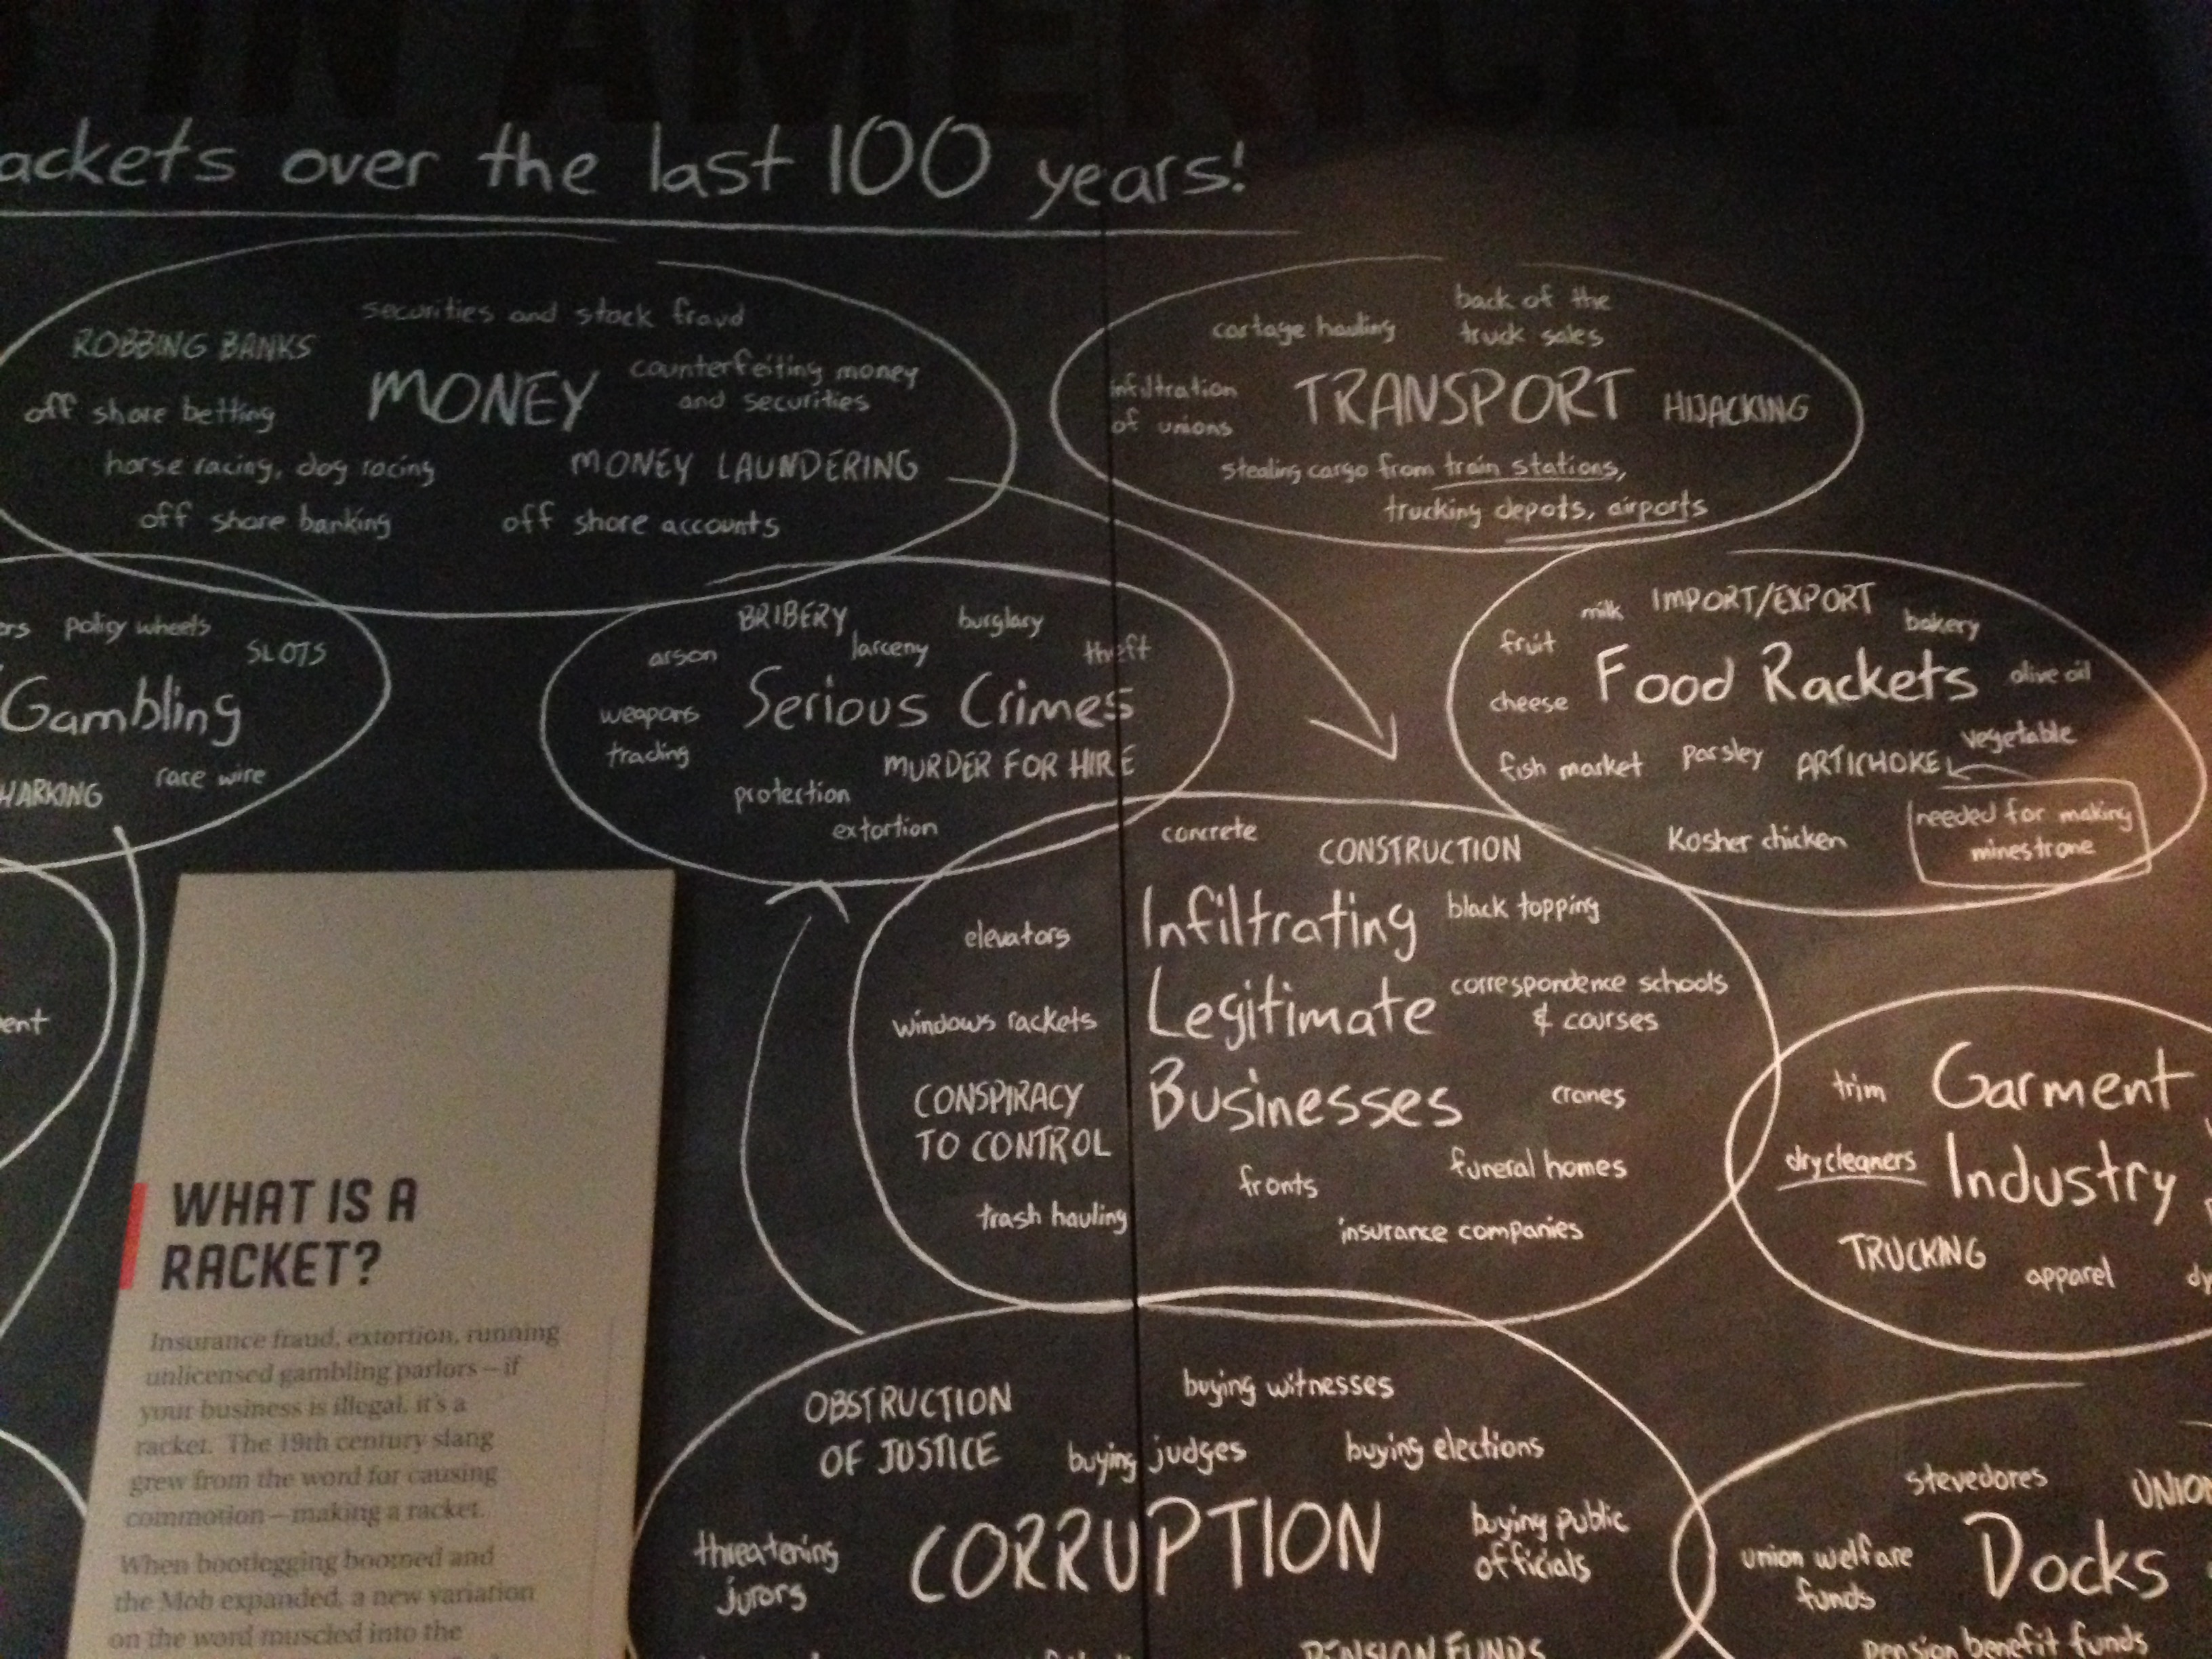 IN AMERICA
ackets over the last 100 years!
securities and stock fraud
ROBBING BANKS
MONEY
counterfeiting money
and securities
off shore betting
horse racing, dog racing
MONEY LAUNDERING
off shore banking
off shore accounts
back of the
truck sales
cartage hauling
infiltration
of unions
TRANSPORT
HIJACKING
stealing cargo from train stations,
trucking depots, airports
policy wheels
SLOTS
Gambling
HARKING
race wire
BRIBERY
burglary
arson
larceny
theft
Serious Crimes
weapons
trading
MURDER FOR HIRE
protection
extortion
milk
IMPORT/EXPORT
bakery
fruit
Food Rackets
olive oil
cheese
vegetable
fish market
parsley
ARTICHOKE
Kosher chicken
needed for making
minestrone
concrete
CONSTRUCTION
elevators
Infiltrating
black topping
windows rackets
Legitimate
correspondence schools
& courses
CONSPIRACY
TO CONTROL
Businesses
cranes
fronts
funeral homes
trash hauling
insurance companies
trim
Garment
drycleaners
Industry
TRUCKING
apparel
dy
ent
WHAT IS A
RACKET?
Insurance fraud, extortion, running
unlicensed gambling parlors – if
your business is illegal, it's a
racket. The 19th century slang
grew from the word for causing
commotion – making a racket.
When bootlegging boomed and
the Mob expanded, a new variation
on the word muscled into the
OBSTRUCTION
OF JUSTICE
buying witnesses
buying judges
buying elections
threatening
jurors
CORRUPTION
buying public
officials
PENSION FUNDS
stevedores
UNION
union welfare
funds
Docks
pension benefit funds